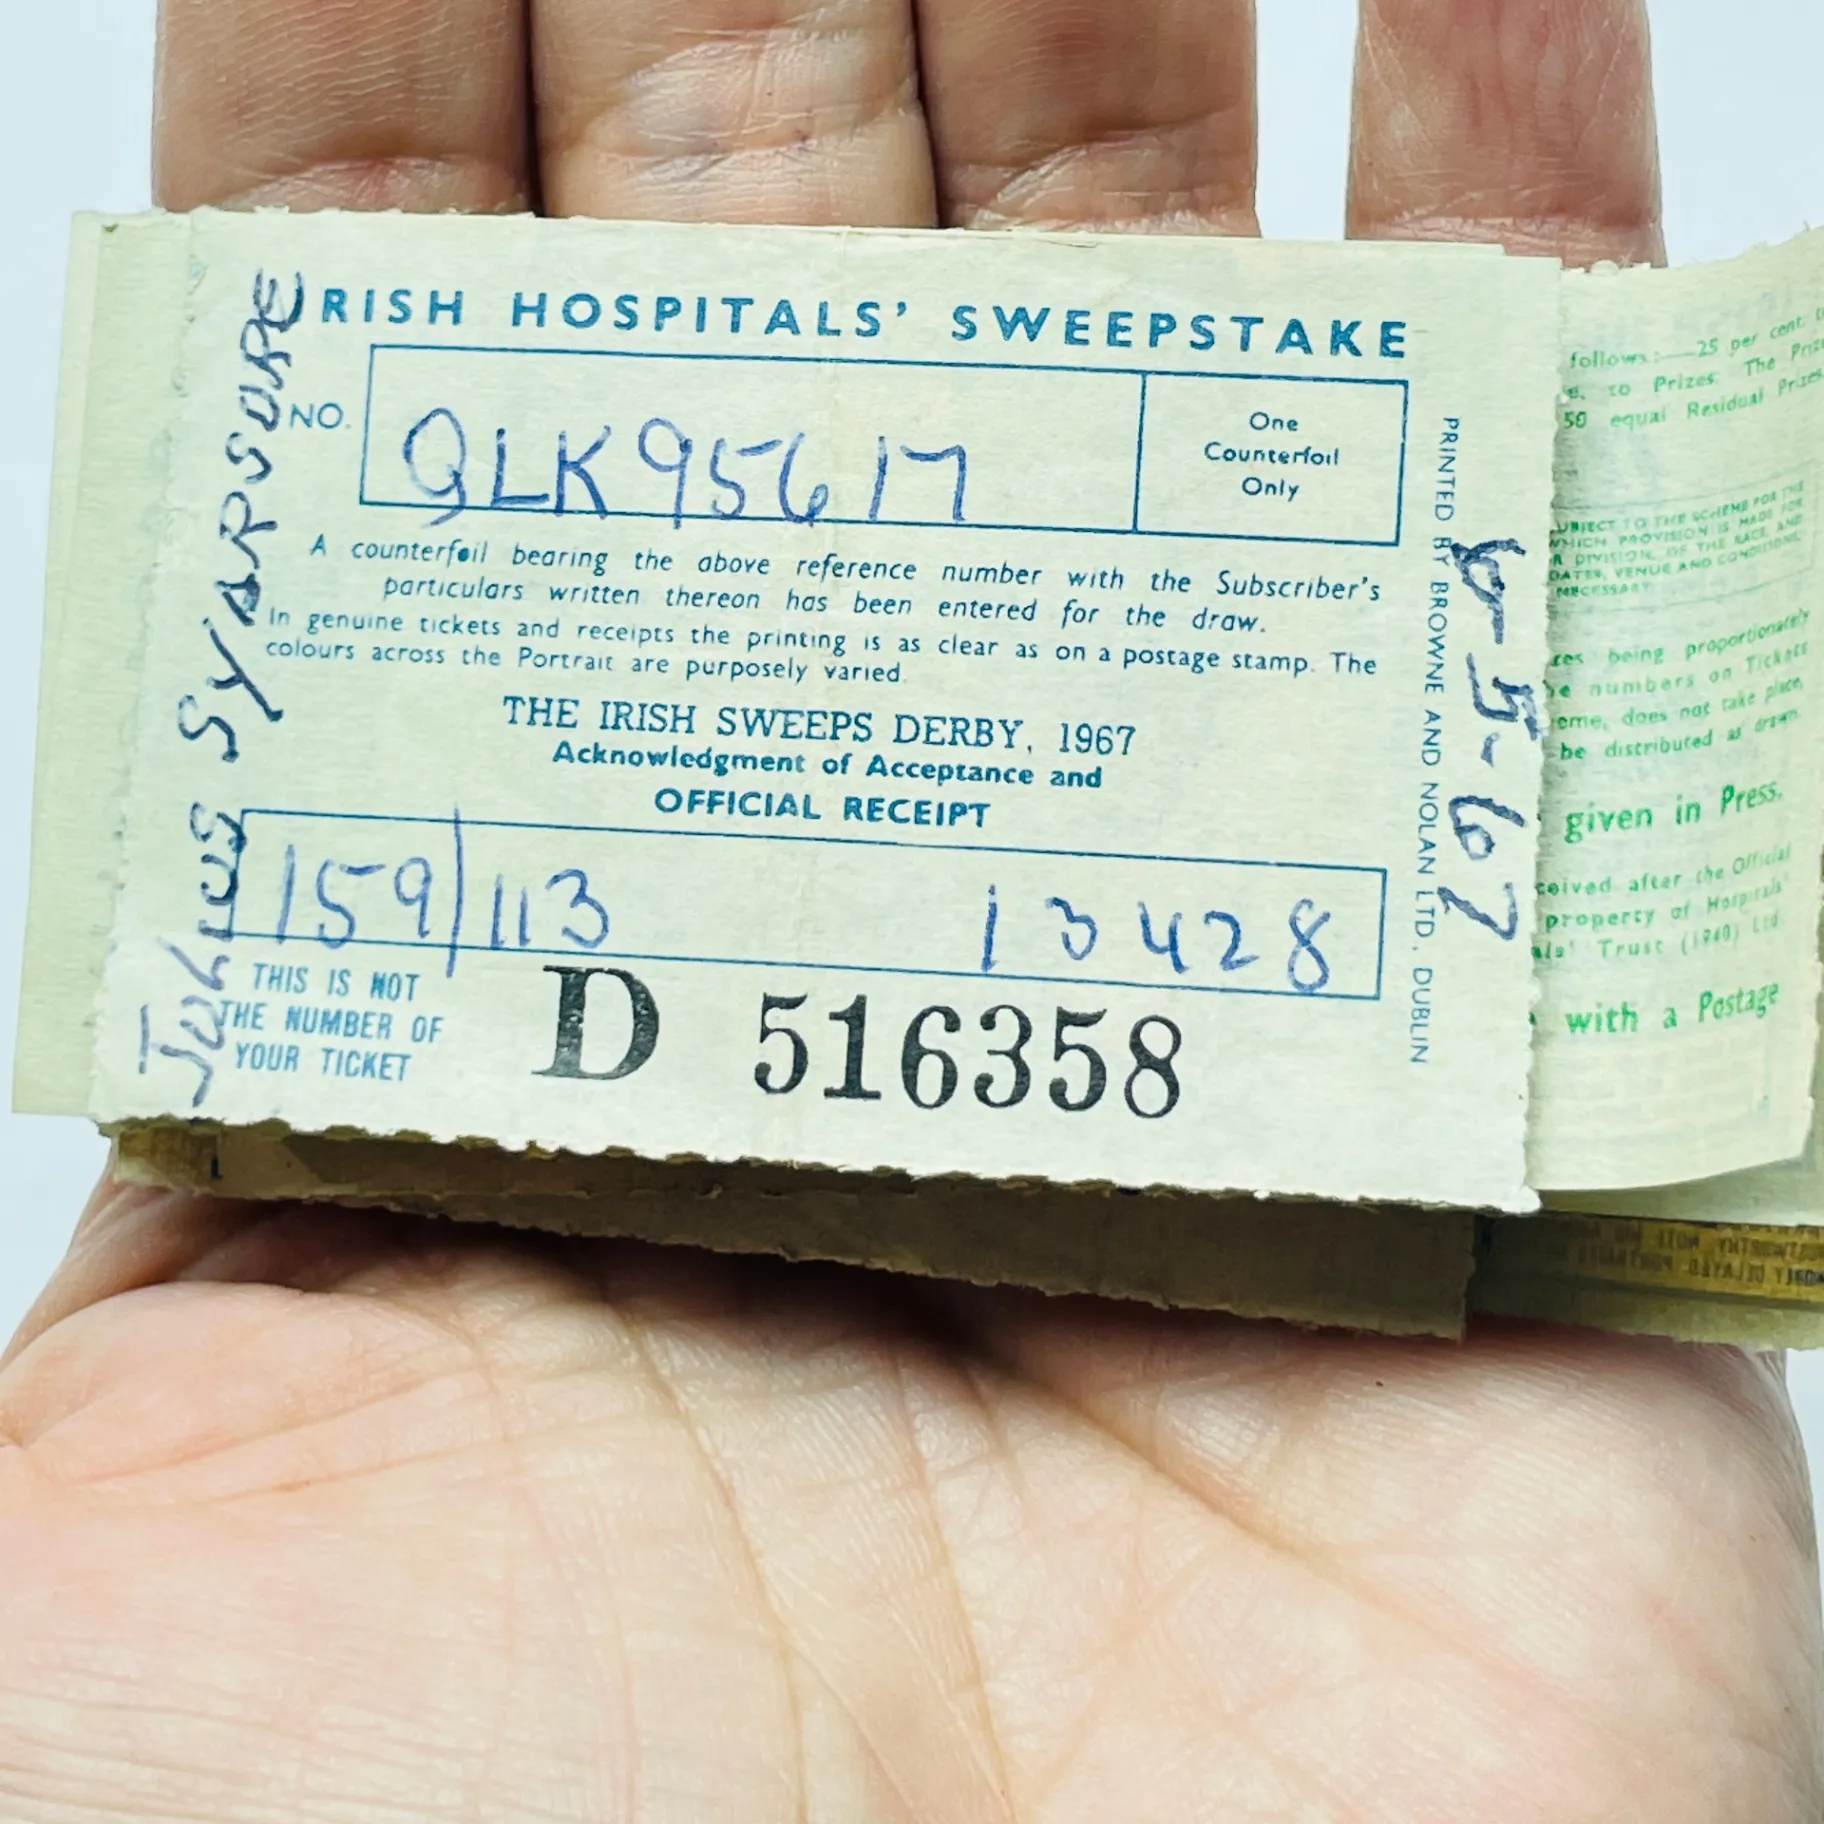 IRISH HOSPITALS' SWEEPSTAKE
NO. QLK95617
One
Counterfoil
Only
A counterfoil bearing the above reference number with the Subscriber's
particulars written thereon has been entered for the draw.
In genuine tickets and receipts the printing is as clear as on a postage stamp. The
colours across the Portrait are purposely varied.
THE IRISH SWEEPS DERBY, 1967
Acknowledgment of Acceptance and
OFFICIAL RECEIPT
159/113 13428
THIS IS NOT
THE NUMBER OF
YOUR TICKET
D 516358
PRINTED BY BROWNE AND NOLAN LTD., DUBLIN
6-5-67
follows:—25 per cent.
to Prizes. The
50 equal Residual Prizes
SUBJECT TO THE SCHEME FOR THE
WHICH PROVISION IS MADE FOR
DIVISION OF THE RACE AND
DATES, VENUE AND CONDITIONS
NECESSARY
being proportionately
numbers on Tickets
does not take place,
be distributed as drawn.
given in Press.
after the Official
property of Hospitals'
Trust (1940) Ltd.
with a Postage